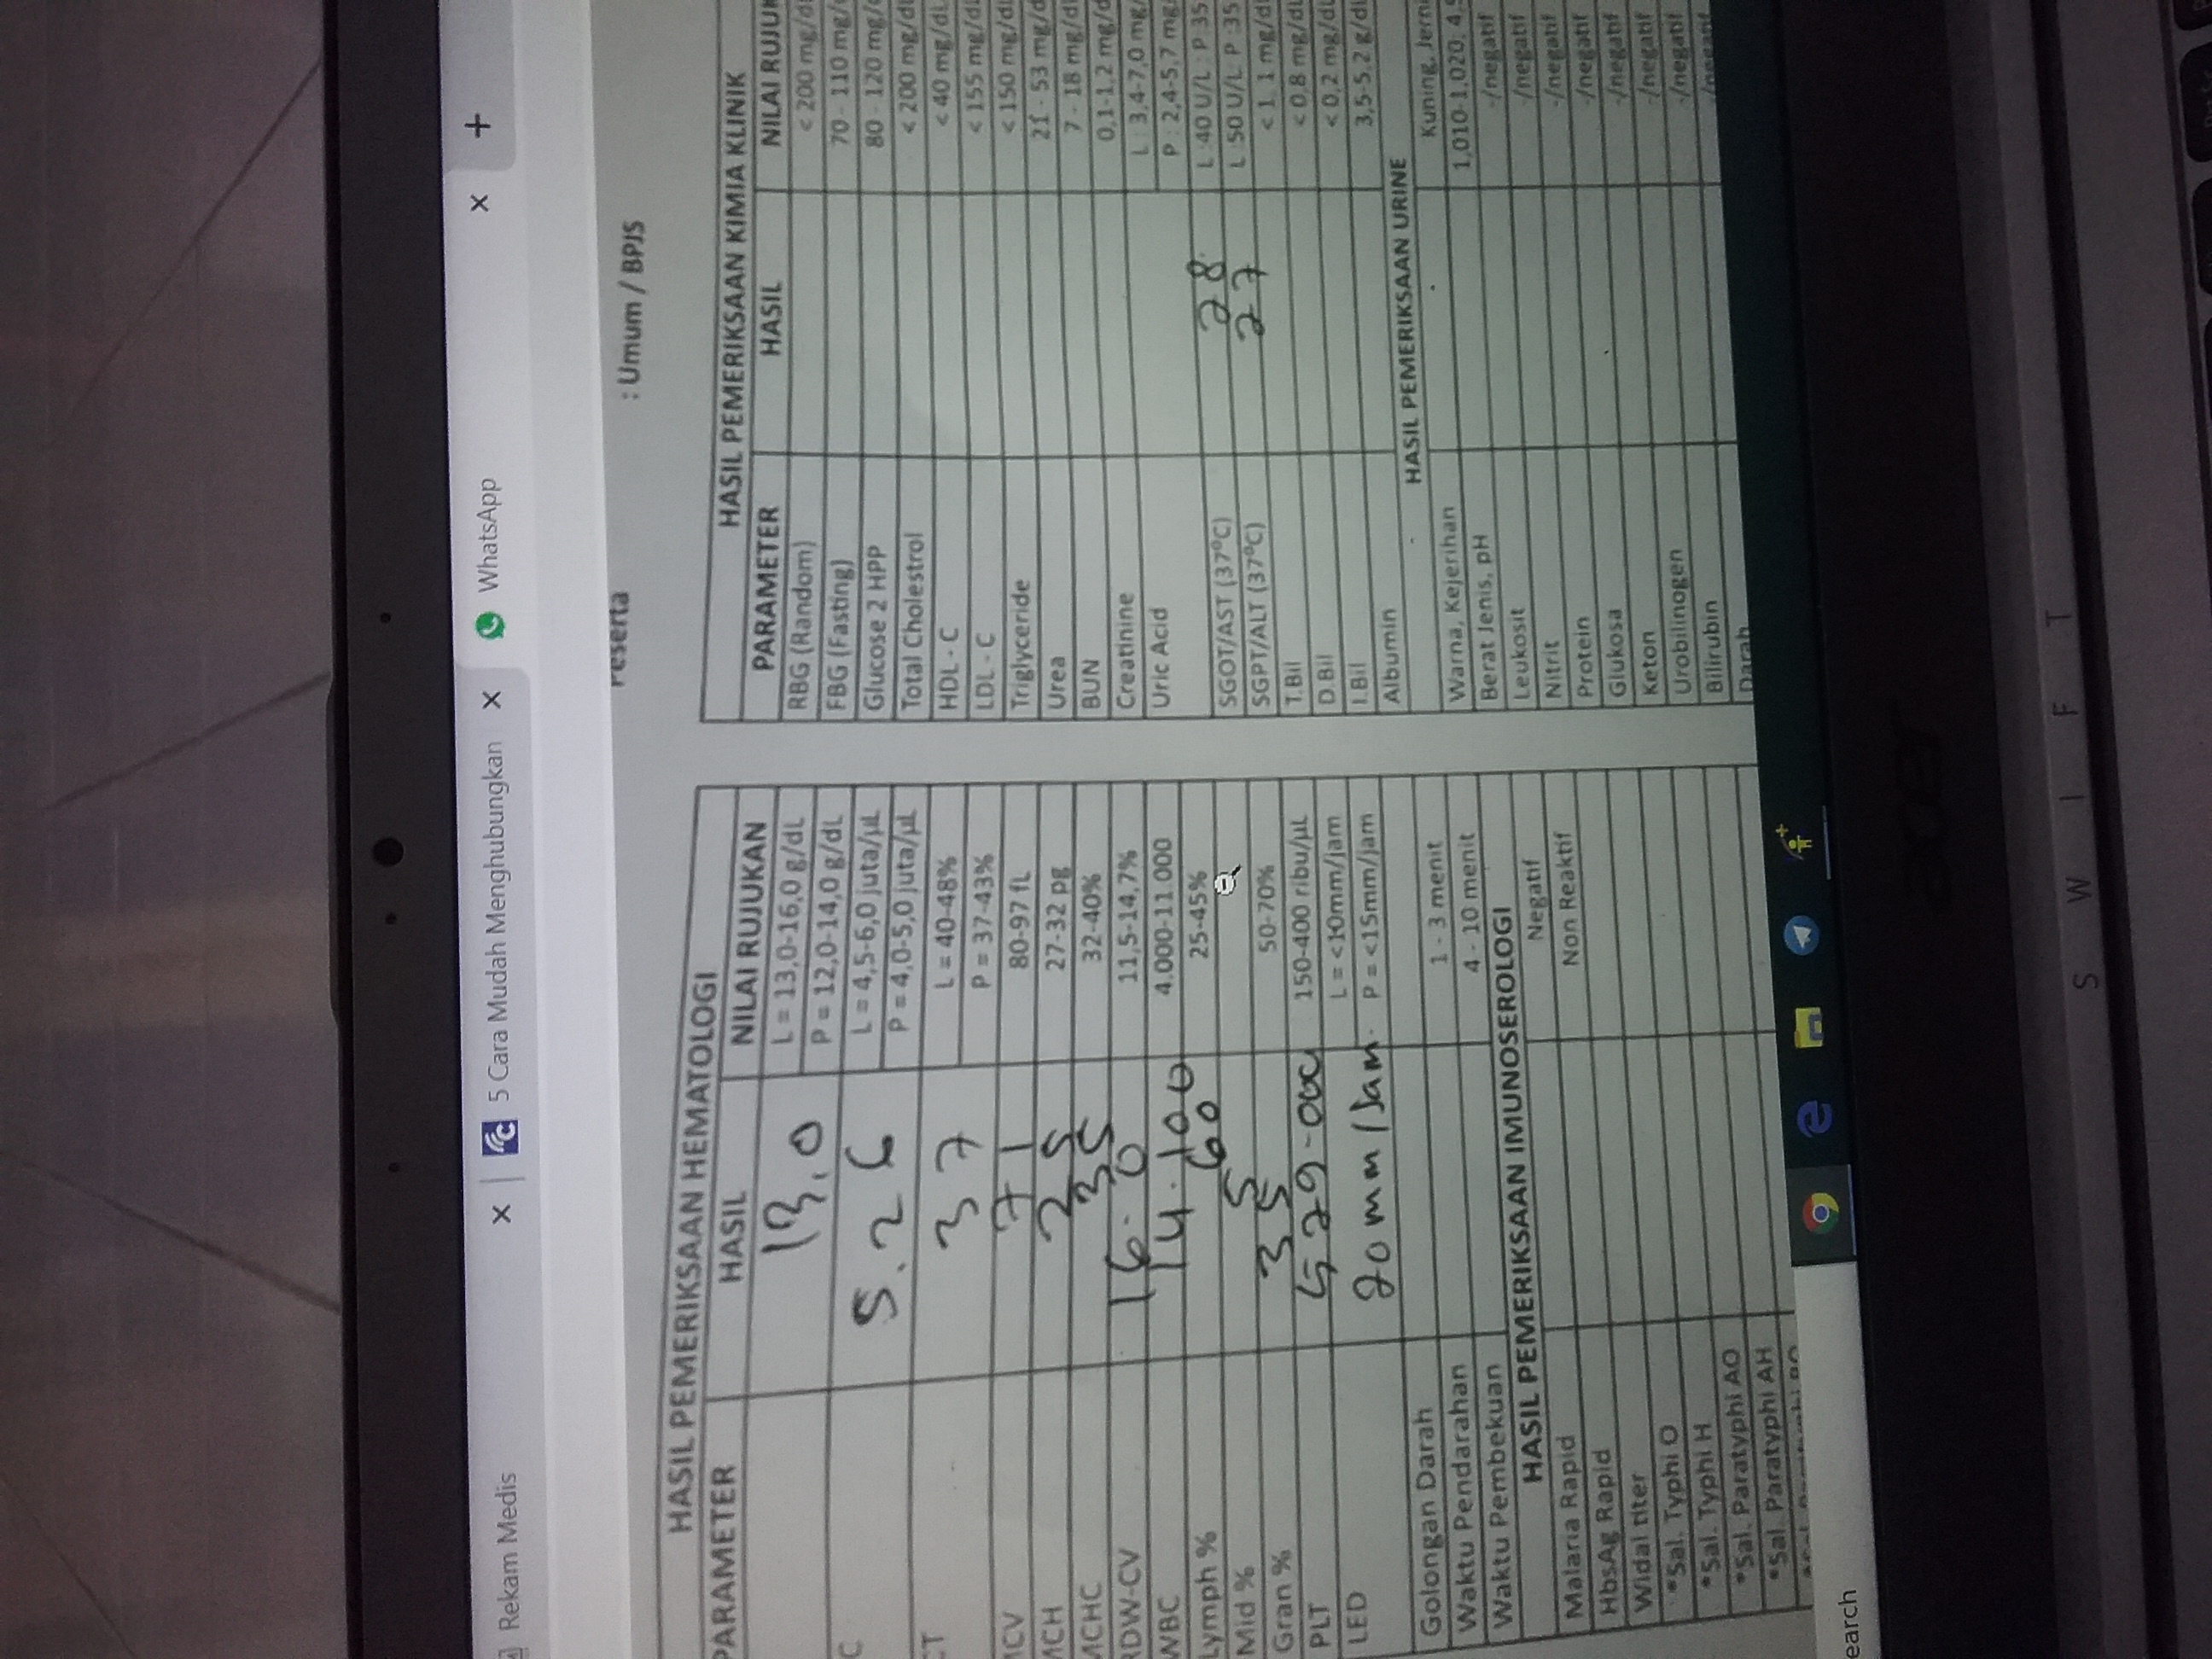 Rekam Medis
5 Cara Mudah Menghubungkan
WhatsApp
Peserta : Umum / BPJS
HASIL PEMERIKSAAN HEMATOLOGI
PARAMETER HASIL NILAI RUJUKAN
13,0 L = 13,0-16,0 g/dL
P = 12,0-14,0 g/dL
C 5.26 L = 4,5-6,0 juta/µL
P = 4,0-5,0 juta/µL
CT 37 L = 40-48%
P = 37-43%
MCV 71 80-97 fL
MCH 25 27-32 pg
MCHC 35 32-40%
RDW-CV 16.0 11,5-14,7%
WBC 14.100 4.000-11.000
Lymph % 60 25-45%
Mid % 5
Gran % 35 50-70%
PLT 529.000 150-400 ribu/µL
LED 20 mm/Jam L = <10mm/jam
P = <15mm/jam
Golongan Darah
Waktu Pendarahan 1 - 3 menit
Waktu Pembekuan 4 - 10 menit
HASIL PEMERIKSAAN IMUNOSEROLOGI
Malaria Rapid Negatif
HbsAg Rapid Non Reaktif
Widal titer
*Sal. Typhi O
*Sal. Typhi H
*Sal. Paratyphi AO
*Sal. Paratyphi AH
HASIL PEMERIKSAAN KIMIA KLINIK
PARAMETER HASIL NILAI RUJUK
RBG (Random) < 200 mg/d
FBG (Fasting) 70 - 110 mg/
Glucose 2 HPP 80 - 120 mg/
Total Cholestrol < 200 mg/dl
HDL - C < 40 mg/dL
LDL - C < 155 mg/dl
Triglyceride < 150 mg/d
Urea 21 - 53 mg/d
BUN 7 - 18 mg/dl
Creatinine 0,1-1,2 mg/d
Uric Acid L : 3,4-7,0 mg/
P : 2,4-5,7 mg
SGOT/AST (37°C) 28 L :40 U/L : P :35
SGPT/ALT (37°C) 27 L :50 U/L: P :35
T.Bil < 1, 1 mg/d
D.Bil < 0,8 mg/dl
I.Bil < 0,2 mg/dl
Albumin 3,5-5,2 g/dl
HASIL PEMERIKSAAN URINE
Warna, Kejerihan Kuning, Jerni
Berat Jenis, pH 1,010-1,020; 4,5
Leukosit -/negatif
Nitrit -/negatif
Protein -/negatif
Glukosa -/negatif
Keton -/negatif
Urobilinogen -/negatif
Bilirubin -/negatif
Darah -/negatif
earch
acer
SWIFT